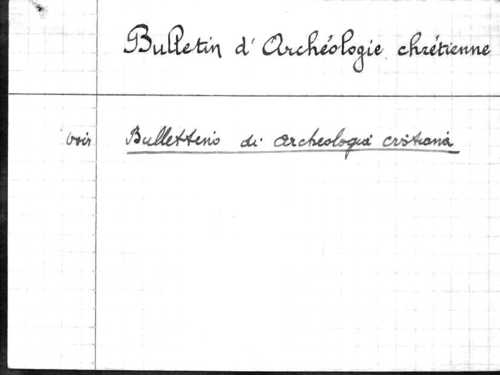 Bulletin d'Archéologie chrétienne
voir Bullettino di archeologia cristiana